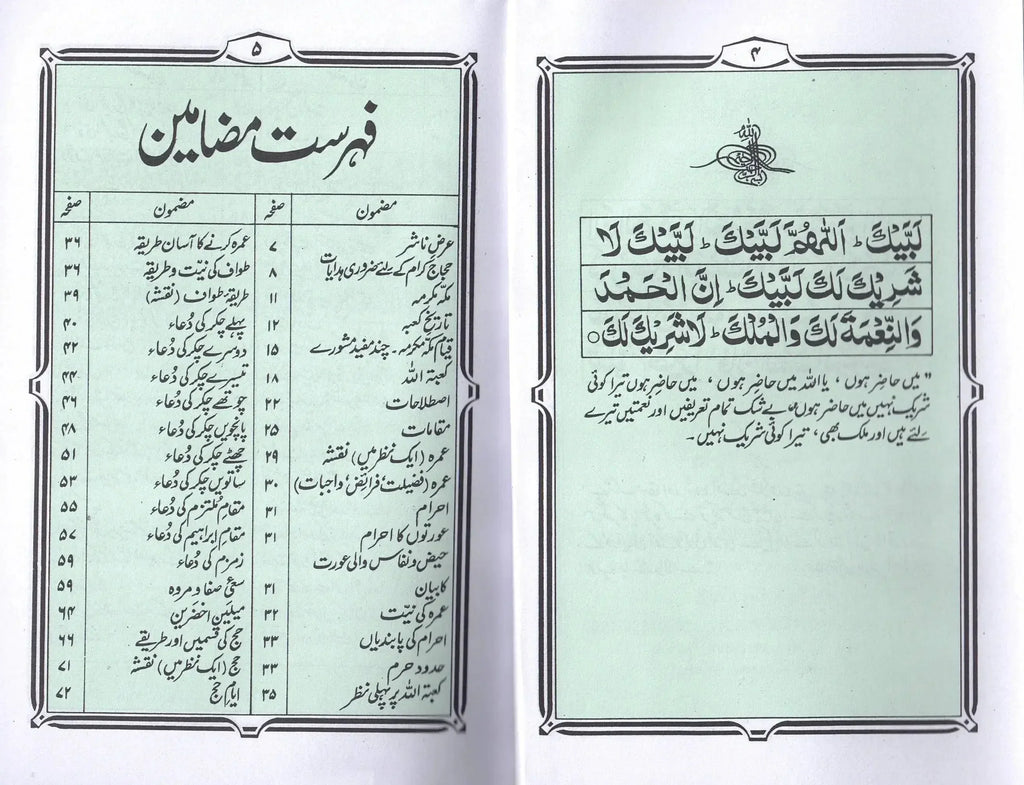 ۴
لَبَّيْكَ ؕ اَللّٰهُمَّ لَبَّيْكَ ؕ لَبَّيْكَ لَا
شَرِيْكَ لَكَ لَبَّيْكَ ؕ اِنَّ الْحَمْدَ
وَالنِّعْمَةَ لَكَ وَالْمُلْكَ ؕ لَا شَرِيْكَ لَكَ ○
"میں حاضر ہوں ، یااللہ میں حاضر ہوں ، میں حاضر ہوں تیرا کوئی
شریک نہیں میں حاضر ہوں بے شک تمام تعریفیں اور نعمتیں تیرے
لئے ہیں اور ملک بھی ، تیرا کوئی شریک نہیں ۔
۵
فہرست مضامین
مضمون صفحہ
عرض ناشر ۷
حجاج کرام کے لئے ضروری ہدایات ۸
مکہ مکرمہ ۱۱
تاریخ کعبہ ۱۲
قیام مکہ مکرمہ ۔ چند مفید مشورے ۱۵
کعبۃ اللہ ۱۸
اصطلاحات ۲۲
مقامات ۲۵
عمرہ (ایک نظر میں) نقشہ ۲۹
عمرہ (فضیلت فرائض واجبات) ۳۰
احرام ۳۱
عورتوں کا احرام ۳۱
حیض و نفاس والی عورت
کا بیان ۳۱
عمرہ کی نیّت ۳۲
احرام کی پابندیاں ۳۳
حدود حرم ۳۳
کعبۃ اللہ پر پہلی نظر ۳۵
مضمون صفحہ
عمرہ کرنے کا آسان طریقہ ۳۶
طواف کی نیّت و طریقہ ۳۶
طریقۂ طواف (نقشہ) ۳۹
پہلے چکر کی دُعاء ۴۰
دوسرے چکر کی دُعاء ۴۲
تیسرے چکر کی دُعاء ۴۴
چوتھے چکر کی دُعاء ۴۶
پانچویں چکر کی دُعاء ۴۸
چھٹے چکر کی دُعاء ۵۱
ساتویں چکر کی دُعاء ۵۳
مقام مُلتزم کی دُعاء ۵۵
مقام ابراہیم کی دُعاء ۵۷
زمزم کی دُعاء ۵۹
سعئ صفا و مروہ ۵۹
میلین اخضرین ۶۴
حج کی قسمیں اور طریقے ۶۶
حج (ایک نظر میں) نقشہ ۷۱
ایام حج ۷۲